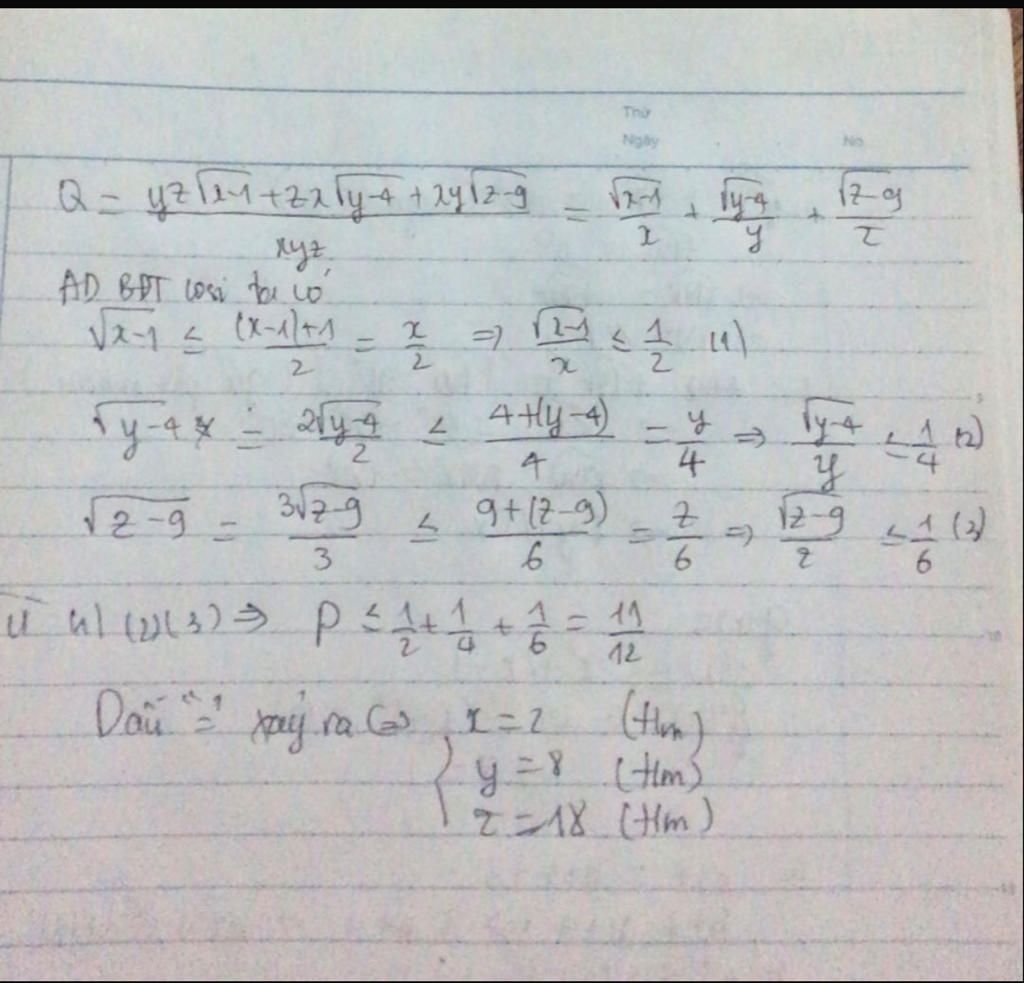 Thứ
Ngày No
Q = (yz√(x-1) + zx√(y-4) + xy√(z-9))/xyz = √(x-1)/x + √(y-4)/y + √(z-9)/z
AD BĐT cosi ta có
√(x-1) ≤ ((x-1)+1)/2 = x/2 => √(x-1)/x ≤ 1/2 (1)
√(y-4) = 2√(y-4)/2 ≤ (4+(y-4))/4 = y/4 => √(y-4)/y ≤ 1/4 (2)
√(z-9) = 3√(z-9)/3 ≤ (9+(z-9))/6 = z/6 => √(z-9)/z ≤ 1/6 (3)
(1) (2) (3) => P ≤ 1/2 + 1/4 + 1/6 = 11/12
Dấu "=" xảy ra (=) { x = 2 (tlm)
y = 8 (tlm)
z = 18 (tlm)